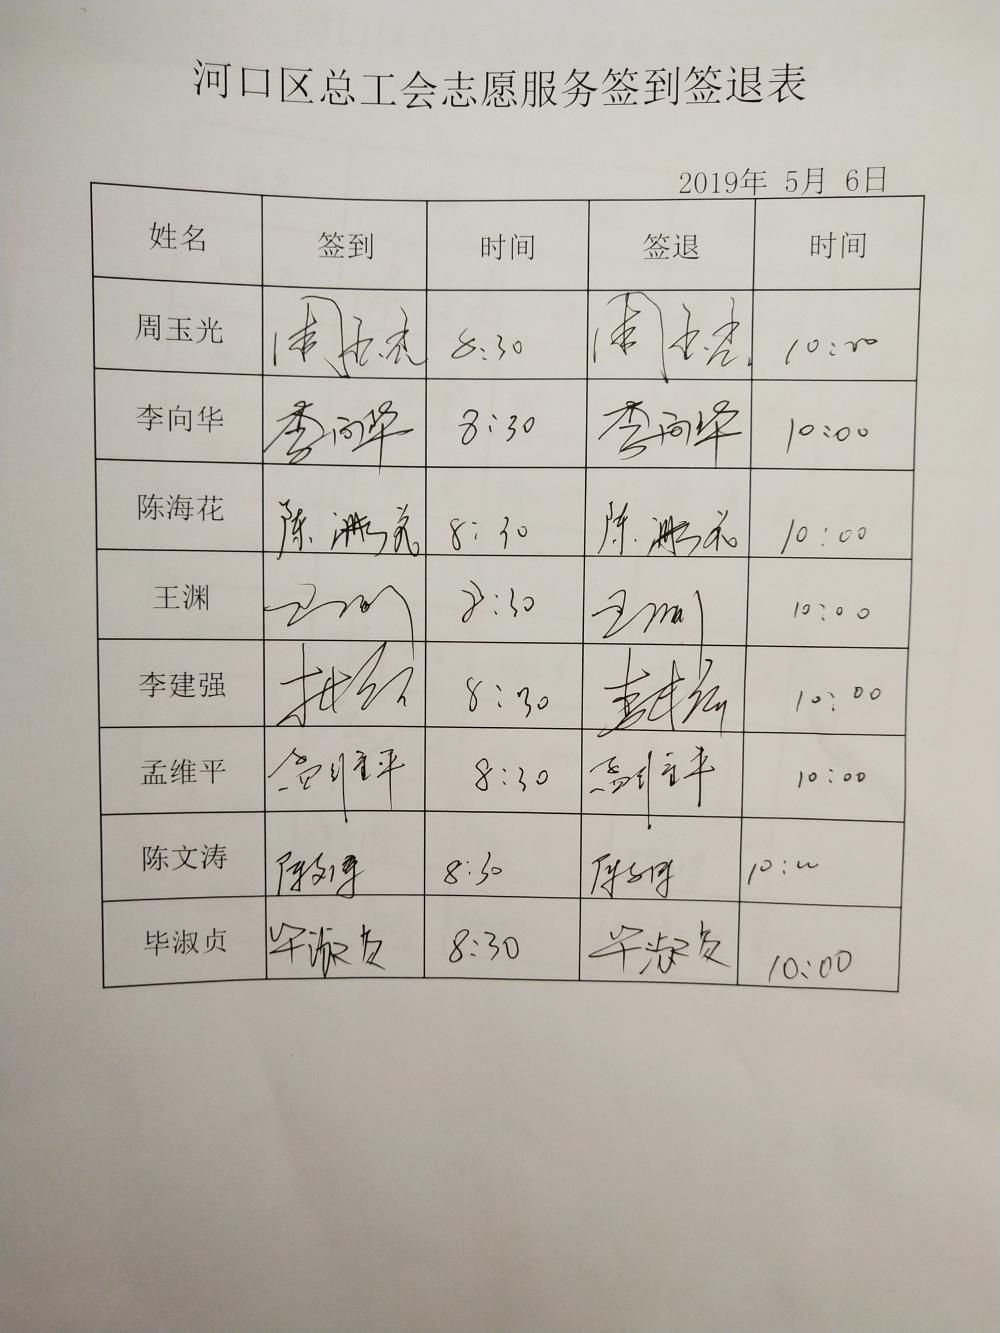 河口区总工会志愿服务签到签退表
2019年 5月 6日
姓名 签到 时间 签退 时间
周玉光 周玉光 8:30 周玉光 10:00
李向华 李向华 8:30 李向华 10:00
陈海花 陈海花 8:30 陈海花 10:00
王渊 王渊 8:30 王渊 10:00
李建强 李建强 8:30 李建强 10:00
孟维平 孟维平 8:30 孟维平 10:00
陈文涛 陈文涛 8:30 陈文涛 10:00
毕淑贞 毕淑贞 8:30 毕淑贞 10:00